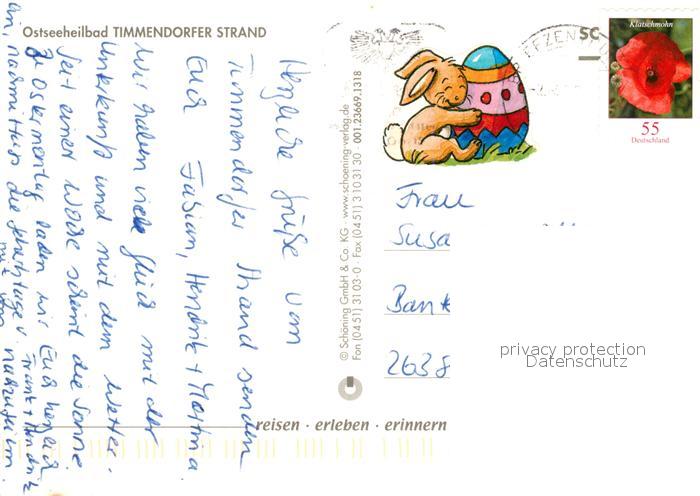 Ostseeheilbad TIMMENDORFER STRAND
Herzliche Grüße vom
Timmendorfer Strand senden
Euch Fabian, Hendrik + Martina.
Wir haben viel Glück mit der
Unterkunft und mit dem Wetter.
Seit einer Woche scheint die Sonne.
Ostermontag laden wir Euch herzlich
ein, nachmittags die Geburtstage v.
Frank + Hendrik
mit uns
© Schöning GmbH & Co. KG · www.schoening-verlag.de
Fon (04 51) 31 03-0 · Fax (04 51) 3 10 31 30 · 001.23669.1318
reisen · erleben · erinnern
SC
Klatschmohn
55
Deutschland
Frau
Susa
Bank
2638
privacy protection
Datenschutz